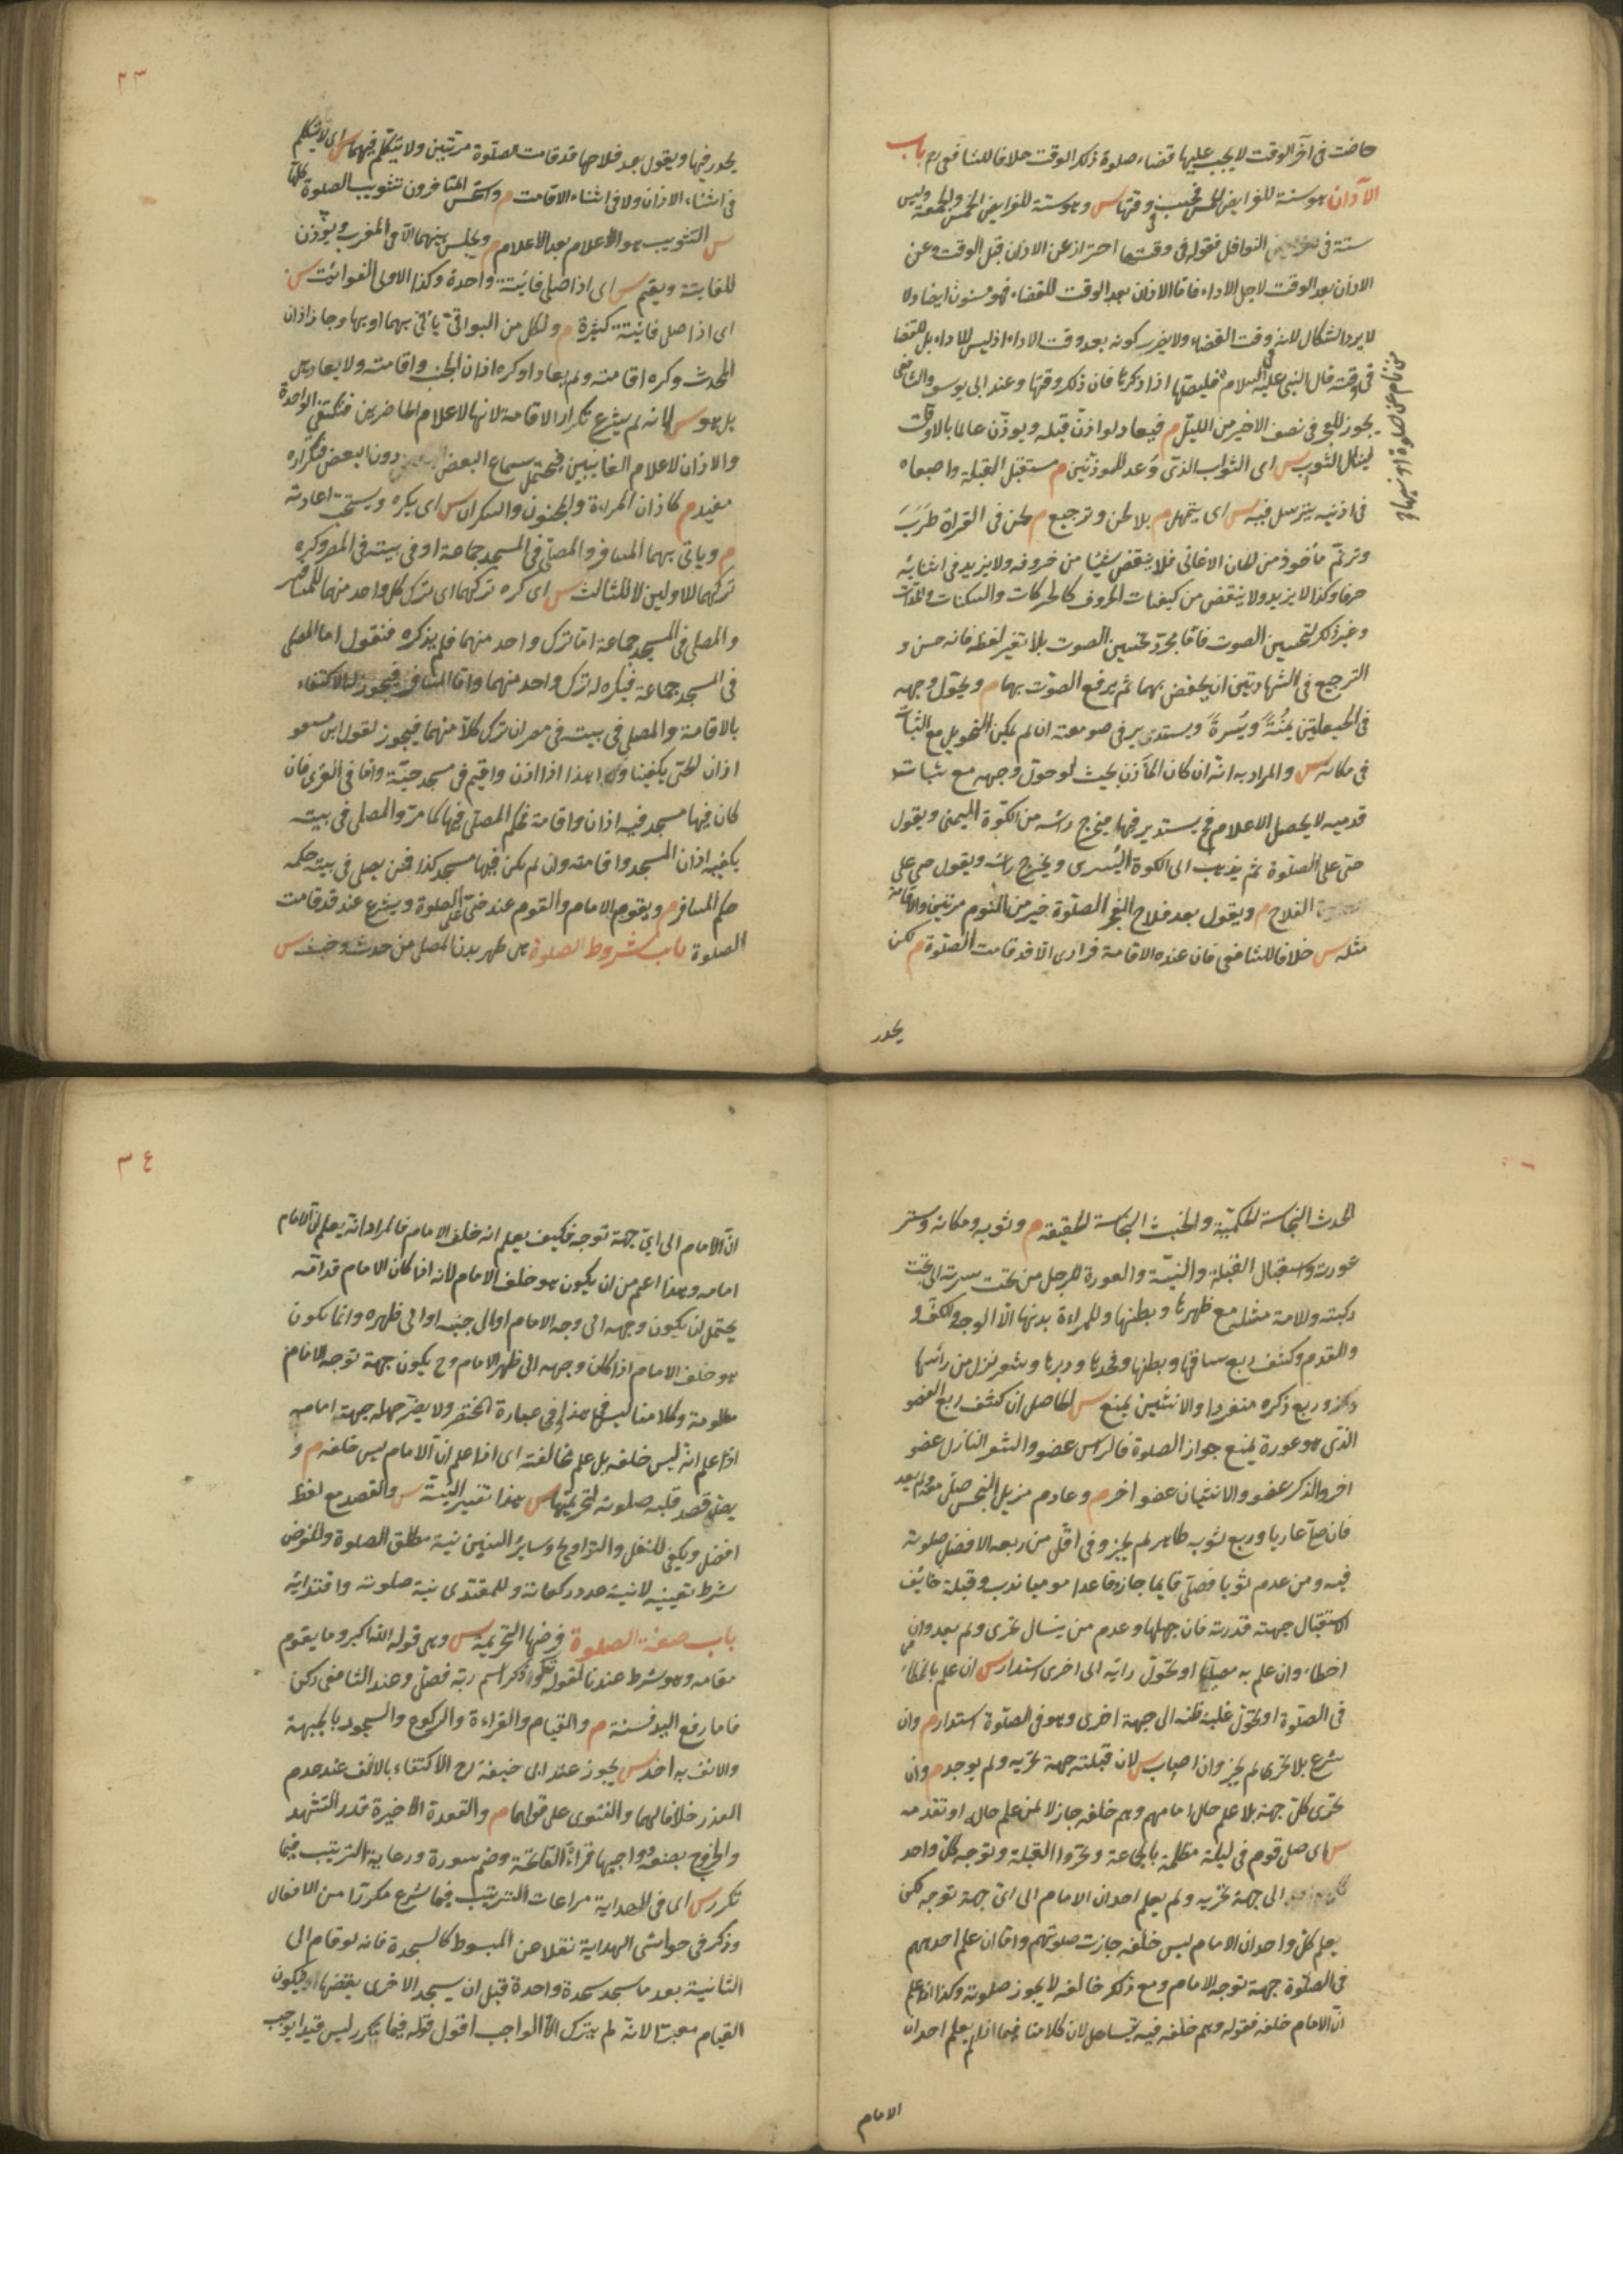 حاضت في آخر الوقت لا يجب عليها قضاء صلوة ذلك الوقت خلافا للشافعي رح باب
الاذان هو سنة للفرايض الخمس فحسب في وقتها س وهو سنة للفرايض الخمس والجمعة وليس
سنة في النوافل فقوله في وقتها احتراز عن الاذان قبل الوقت وعن
الاذان بعد الوقت لاجل الاداء فاما الاذان بعد الوقت للقضاء فهو مسنون ايضا ولا
لا يرد اشكال لانه في وقت القضاء ولا يضر كونه بعد وقت الاداء اذ ليس للاداء بل للقضا
في وقته قال النبي عليه السلام فليصلها اذا ذكرها فان ذلك وقتها وعند ابي يوسف والشافعي
يجوز للفجر في نصف الاخير من الليل م فيعاد لو اذن قبله ويؤذن عالما بالاوقات
لينال الثوب س اى الثواب الذي وعد للمؤذنين م مستقبل القبلة واصبعاه
في اذنيه يترسل فيه س اى يتمهل م بلا لحن وترجيع م لحن في القراة طرب
وترنم مأخوذ من الحان الاغاني فلا ينقص شيئا من حروفه ولا يزيد في اثنائه
حرفا وكذا لا يزيد ولا ينقص من كيفيات الحروف كالحركات والسكنات والمدات
وغير ذلك لتحسين الصوت فاما مجرد تحسين الصوت بلا تغير لفظه فانه حسن و
الترجيع في الشهادتين ان يخفض بهما ثم يرفع الصوت بهما م ويحول وجهه
في الحيعلتين يمنة ويسرة ويستدير في صومعته ان لم يمكن التحويل مع الثبات
في مكانه س والمراد به انه ان كان المأذن بحيث لو حول وجهه مع ثبات
قدميه لا يحصل الاعلام فح يستدير فيها فيخرج رأسه من الكوة اليمنى ويقول
حي على الصلوة ثم يذهب الى الكوة اليسرى ويخرج راسه ويقول حي على
الفلاح م ويقول بعد فلاح الفجر الصلوة خير من النوم مرتين والاقامة
مثله س خلافا للشافعي فان عنده الاقامة فرادى الا قد قامت الصلوة م لكن
يحدر
من نام عن صلوة او نسيها
٢٣
يحدر فيها ويقول بعد فلاحها قد قامت الصلوة مرتين ولا يتكلم فيهما س اى لا يتكلم
في اثناء الاذان ولا في اثناء الاقامت م واستحسن المتاخرون تثويب الصلوة كلها
س التثويب هو الاعلام بعد الاعلام م ويجلس بينهما الا في المغرب ويؤذن
للفايتة ويقيم س اى اذا صلى فائتة واحدة وكذا الاولى الفوائت س
اى اذا صلى فائتة كثيرة م ولكل من البواقي يأتي بهما او بها وجاز اذان
المحدث وكره اقامته ولم يعادا وكره اذان الجنب واقامته ولا يعاد هى
بل هو س لانه لم يشرع تكرار الاقامة لانها لاعلام الحاضرين فتكفي الواحدة
والاذان لاعلام الغايبين فيحتمل سماع البعض دون البعض فتكراره
مفيد م كاذان المراة والمجنون والسكران س اى يكره ويستحب اعادته
م وياتي بهما المسافر والمصلي في المسجد جماعة او في بيته في المصر وكره
تركهما للاولين لا للثالث س اى كره تركهما اى ترك كل واحد منهما للمسافر
والمصلي في المسجد جماعة اما ترك واحد منهما فلم يذكره فنقول اما المصلي
في المسجد جماعة فيكره له ترك واحد منهما واما المسافر فيجوز له الاكتفاء
بالاقامة والمصلي في بيته في مصر ان ترك كلا منهما فيجوز لقول ابن مسعود
اذان الحي يكفينا وهذا اذا اذن واقيم في مسجد حيه واما في القرى فان
كان فيها مسجد فيه اذان واقامة فحكم المصلي فيها كما مر والمصلي في بيته
يكفيه اذان المسجد واقامته وان لم يكن فيها مسجد كذا فمن يصلي في بيته حكمه
حكم المسافر م ويقوم الامام والقوم عند حي على الصلوة ويشرع عند قد قامت
الصلوة باب شروط الصلوة هى طهر بدن المصلي من حدث وخبث س
الحدث النجاسة الحكمية والخبث النجاسة الحقيقة م وثوبه ومكانه وستر
عورته واستقبال القبلة والنية والعورة للرجل من تحت سرته الى تحت
ركبته وللامة مثله مع ظهرها وبطنها وللمراءة بدنها الا الوجه والكف و
والقدم وكشف ربع ساقها وبطنها وفخذها ودبرها وشعر نزل من راسها
وربع ذكره منفردا والانثيين يمنع س الحاصل ان كشف ربع العضو
الذي هو عورة يمنع جواز الصلوة فالراس عضو والشعر النازل عضو
اخر والذكر عضو والانثيان عضو اخر م وعادم مزيل النجس صلى معه ولم يعد
فان صلى عاريا وربع ثوبه طاهر لم يجز وفي اقل من ربعه الافضل صلوته
فيه ومن عدم ثوبا فصلى قايما جاز وقاعدا موميا ندب وقبلة خائف
الاستقبال جهة قدرته فان جهلها وعدم من يسال تحرى ولم يعد وان
اخطاء وان علم به مصليا او تحول رايه الى اخرى استدار س ان علم بالخطاء
في الصلوة او تحول غلبة ظنه الى جهة اخرى وهو في الصلوة استدار م وان
شرع بلا تحري لم يجز وان اصاب س لان قبلته جهة تحريه ولم يوجد م وان
تحرى كل جهة بلا علم حال امامهم وهم خلفه جاز لا لمن علم حاله او تقدمه
س اى صلى قوم في ليلة مظلمة بالجماعة وتحروا القبلة وتوجه كل واحد
الى جهة تحريه ولم يعلم احد ان الامام الى اى جهة توجه لكن
يعلم كل واحد ان الامام ليس خلفه جازت صلوتهم واما ان علم احدهم
في الصلوة جهة توجه الامام ومع ذلك خالفه لا يجوز صلوته وكذا اذا علم
ان الامام خلفه فقوله وهم خلفه فيه تساهل لان كلامنا فيما اذا لم يعلم احد ان
الامام
٣٤
ان الامام الى اى جهة توجه فكيف يعلم انه خلف الامام فالمراد انه يعلم ان الامام
امامه وهذا اعم من ان يكون هو خلف الامام لانه اذا كان الامام قدامه
يحتمل ان يكون وجهه الى وجه الامام او الى جنبه او الى ظهره وانما يكون
هو خلف الامام اذا كان وجهه الى ظهر الامام وح يكون جهة توجه الامام
معلومة وكلامنا ليس في هذا وفي عبارة المختصر ولا يضر جهله جهة امامه
اذا علم انه ليس خلفه بل علم مخالفته اى اذا علم ان الامام ليس خلفه م و
يصل قصد قلبه صلوته لتحريمتها س هذا تفسير النية س والقصد مع لفظ
افضل ويكفي للنفل والتراويح وسائر السنن نية مطلق الصلوة وللفرض
شرط تعيينه لا نية عدد ركعاته وللمقتدي نية صلوته واقتدائه
باب صفة الصلوة فرضها التحريمة س وهى قوله الله اكبر وما يقوم
مقامه وهو شرط عندنا لقوله تعالى وذكر اسم ربه فصلى وعند الشافعي ركن
فاما رفع اليد فسنة م والقيام والقراءة والركوع والسجود بالجبهة
والانف به اخذ س يجوز عند ابي حنيفة رح الاكتفاء بالانف عند عدم
العذر خلافا لهما والفتوى على قولهما م والقعدة الاخيرة قدر التشهد
والخروج بصنعه وواجبها قراءة الفاتحة وضم سورة ورعاية الترتيب فيما
تكرر س اى في الهداية مراعات الترتيب فيما شرع مكررا من الافعال
وذكر في حواشي الهداية نقلا عن المبسوط كالسجدة فانه لو قام الى
الثانية بعد ما سجد سجدة واحدة قبل ان يسجد الاخرى يقضها ويكون
القيام معتبرا لانه لم يترك الا الواجب اقول قوله فيما تكرر ليس قيدا يوجب